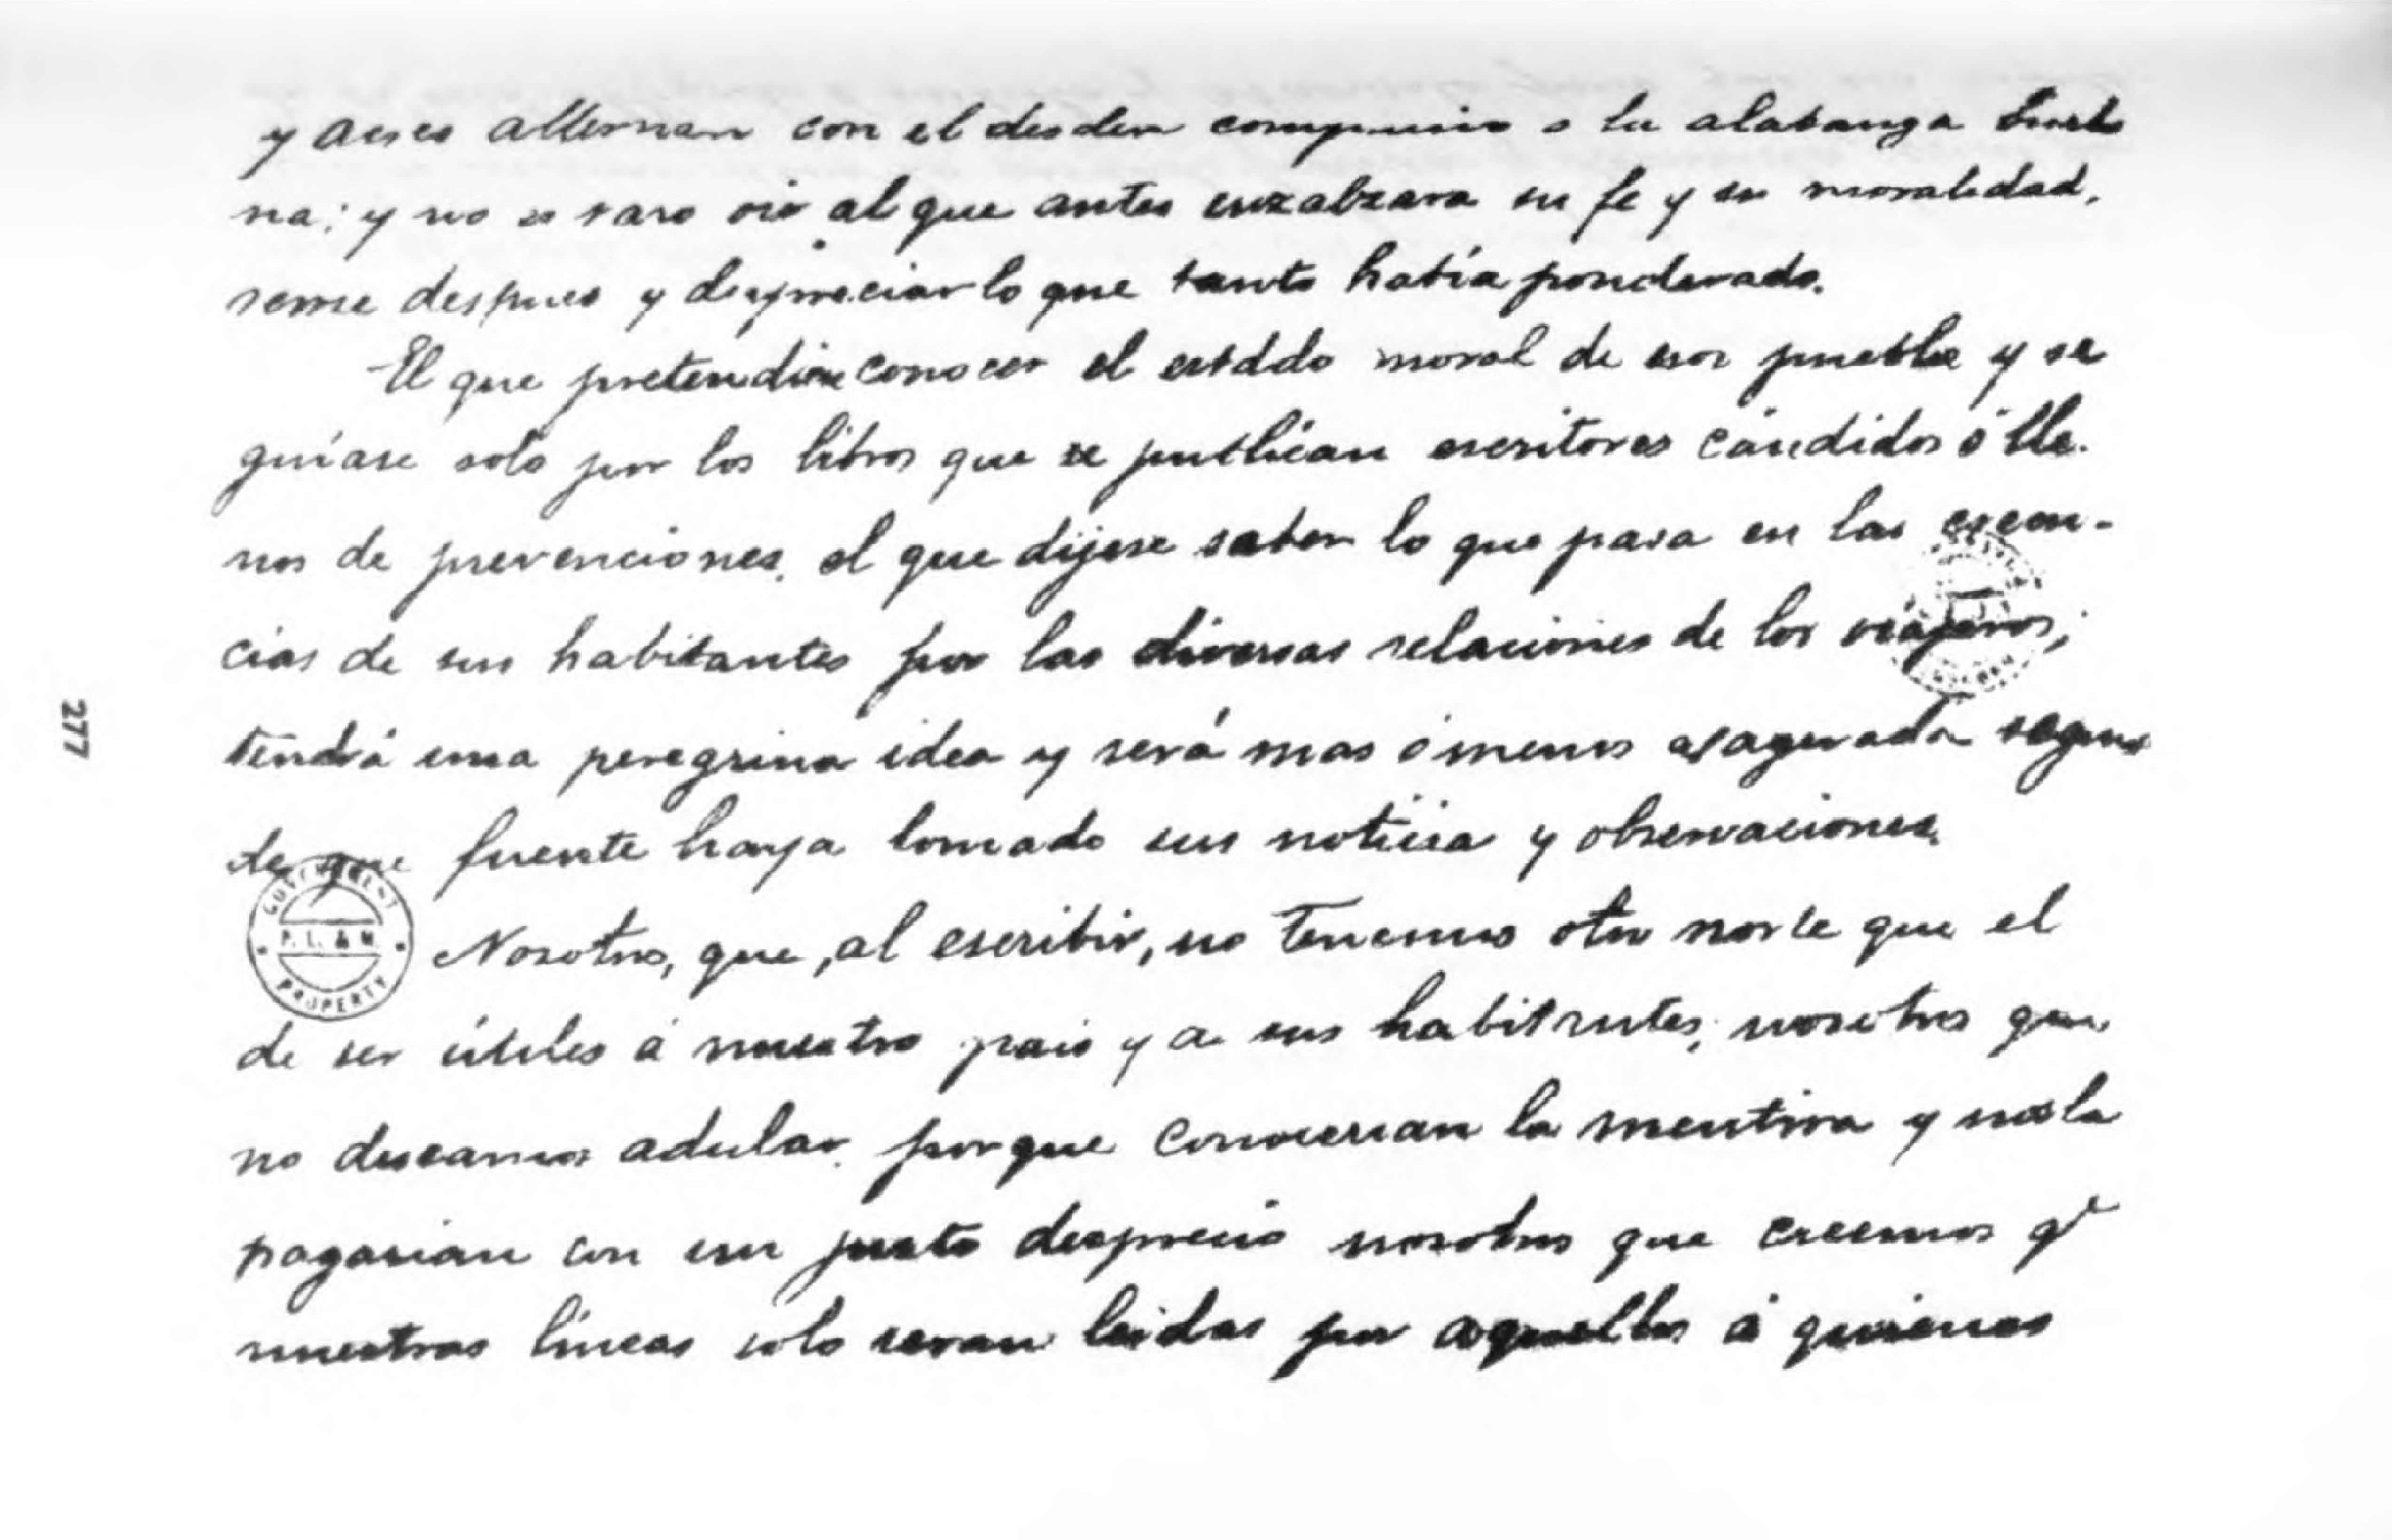 y aires alternan con el desden compasivo o la alabanza
na; y no es raro oir al que antes enzalzara su fe y su moralidad,
reirse despues y despreciar lo que tanto había ponderado.
El que pretendiese conocer el estddo moral de esos pueblos y se
guíase solo por los libros que se publican escritores cándidos ó lle-
nos de prevenciones, el que dijese saber lo que pasa en las creen-
cias de sus habitantes por las diversas relaciones de los viajeros,
tendrá una peregrina idea y será mas ó menos exagerada segun
de que fuente haya tomado sus noticia y observaciones.
Nosotros, que, al escribir, no tenemos otro norte que el
de ser útiles á nuestro pais y a sus habitantes; nosotros que
no deseamos adular, porque conocerian la mentira y nos la
pagarian con un justo desprecio nosotros que creemos qe
nuestras líneas solo seran leidas por aquellos á quienes
277
GOVERNMENT
P. L. & M.
PROPERTY